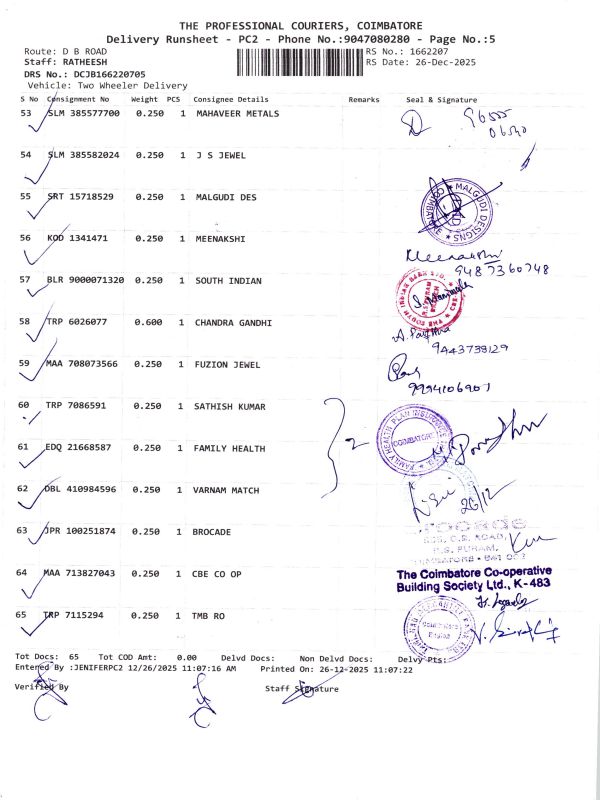 THE PROFESSIONAL COURIERS, COIMBATORE
Delivery Runsheet - PC2 - Phone No.:9047080280 - Page No.:5
Route: D B ROAD RS No.: 1662207
Staff: RATHEESH RS Date: 26-Dec-2025
DRS No.: DCJB166220705
Vehicle: Two Wheeler Delivery
S No Consignment No Weight PCS Consignee Details Remarks Seal & Signature
53 SLM 385577700 0.250 1 MAHAVEER METALS
54 SLM 385582024 0.250 1 J S JEWEL
55 SRT 15718529 0.250 1 MALGUDI DES
MALGUDI DESIGNS COIMBATORE
56 KOD 1341471 0.250 1 MEENAKSHI
Meenakshi
9487360748
57 BLR 9000071320 0.250 1 SOUTH INDIAN
THE SOUTH INDIAN BANK LTD.
58 TRP 6026077 0.600 1 CHANDRA GANDHI
9443738129
59 MAA 708073566 0.250 1 FUZION JEWEL
9994106907
60 TRP 7086591 0.250 1 SATHISH KUMAR
2
61 EDQ 21668587 0.250 1 FAMILY HEALTH
FAMILY HEALTH PLAN INSURANCE
COIMBATORE
62 DBL 410984596 0.250 1 VARNAM MATCH
26/12
63 JPR 100251874 0.250 1 BROCADE
ROAD,
R.S. PURAM,
64 MAA 713827043 0.250 1 CBE CO OP
The Coimbatore Co-operative
Building Society Ltd., K-483
65 TRP 7115294 0.250 1 TMB RO
Tot Docs: 65 Tot COD Amt: 0.00 Delvd Docs: Non Delvd Docs: Delvy Pts:
Entered By :JENIFERPC2 12/26/2025 11:07:16 AM Printed On: 26-12-2025 11:07:22
Verified By Staff Signature